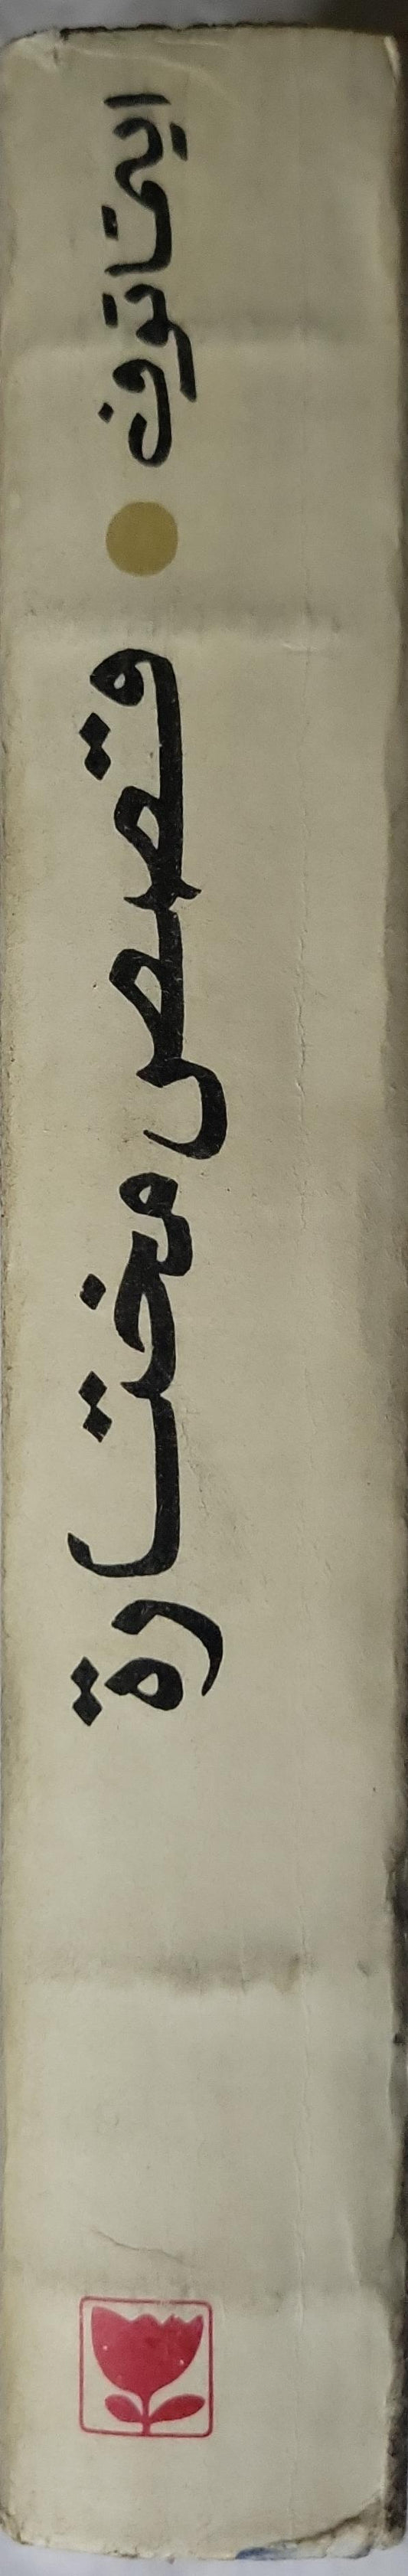 ايتماتوف
قصص مختارة